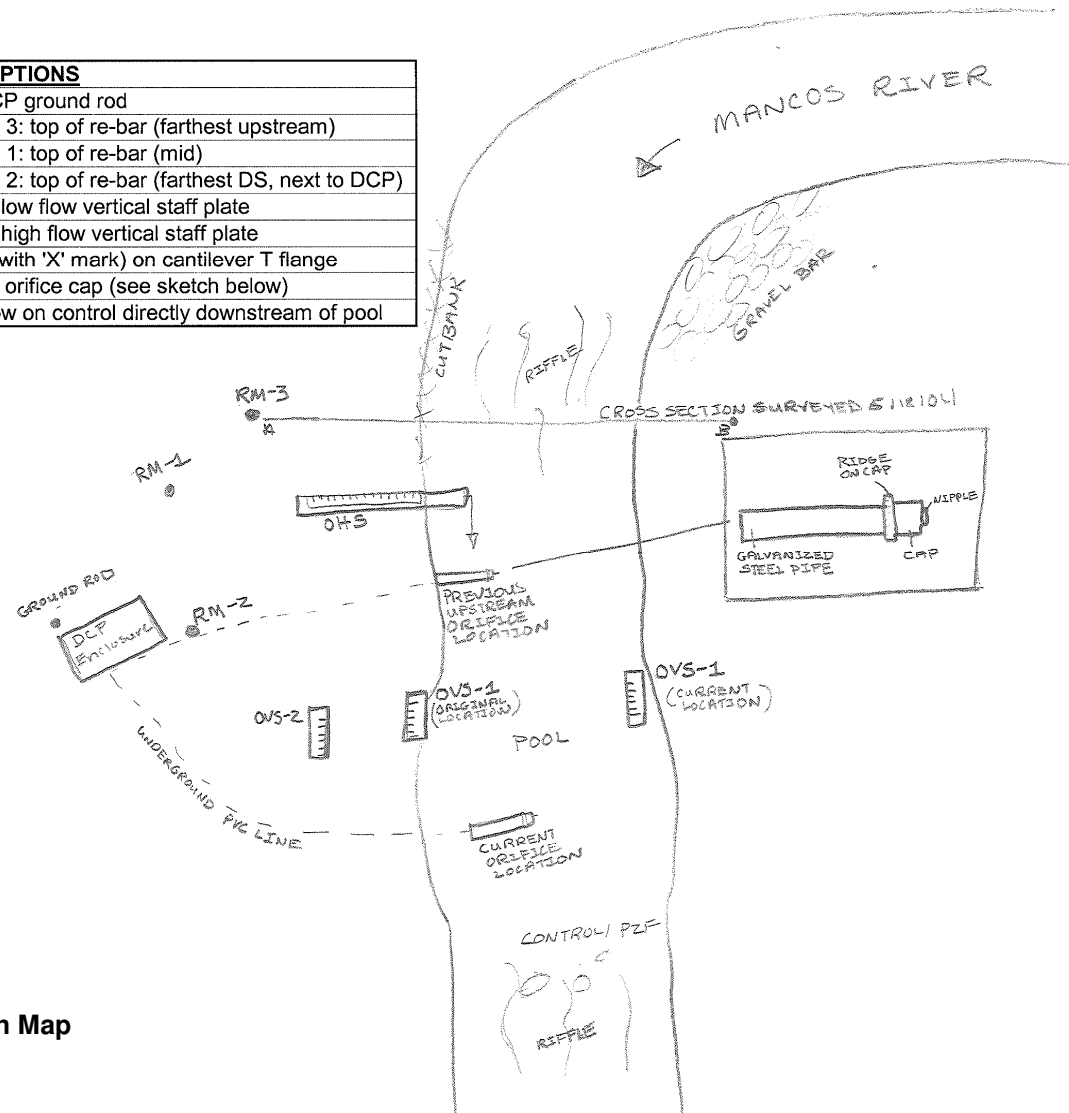 PTIONS
CP ground rod
3: top of re-bar (farthest upstream)
1: top of re-bar (mid)
2: top of re-bar (farthest DS, next to DCP)
low flow vertical staff plate
high flow vertical staff plate
with 'X' mark) on cantilever T flange
orifice cap (see sketch below)
ow on control directly downstream of pool
MANCOS RIVER
GRAVEL BAR
CUTBANK
RIFFLE
RM-3
CROSS SECTION SURVEYED 5/18/04
RM-1
OHS
RIDGE
ON CAP
NIPPLE
CAP
GALVANIZED
STEEL PIPE
GROUND ROD
DCP
Enclosure
RM-2
PREVIOUS
UPSTREAM
ORIFICE
LOCATION
OVS-2
OVS-1
(ORIGINAL
LOCATION)
OVS-1
(CURRENT
LOCATION)
POOL
UNDERGROUND PVC LINE
CURRENT
ORIFICE
LOCATION
CONTROL/ PZF
RIFFLE
n Map